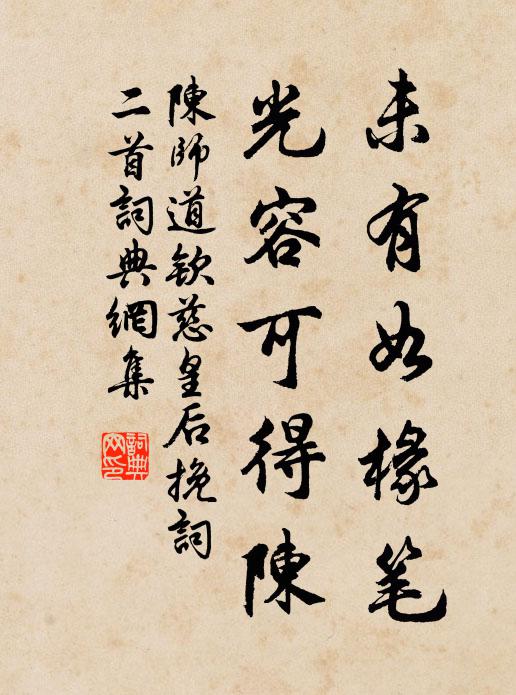 未有如椽笔
光容可得陳
陳師道欽慈皇后挽詞
二首詞典網集
詞典
网印